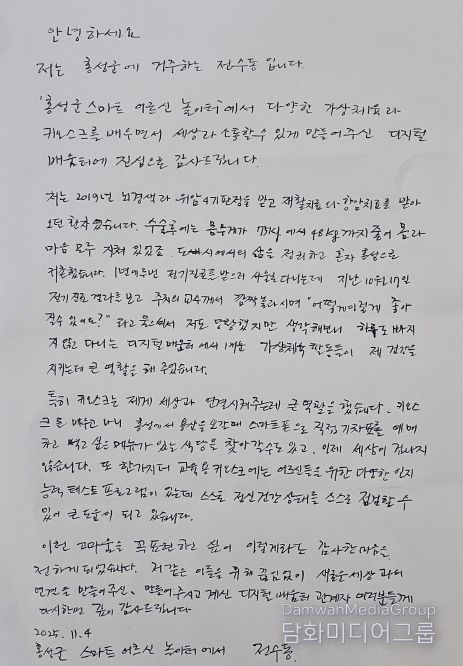 안녕하세요
저는 홍성군에 거주하는 전수동 입니다.
'홍성군 스마트 어르신 놀이터'에서 다양한 가상체육과
키오스크를 배우면서 세상과 소통할수 있게 만들어주신 디지털
배움터에 진심으로 감사드립니다.
저는 2019년 뇌경색과 위암4기판정을 받고 재활치료와 항암치료를 받아
오던 환자였습니다. 수술후에는 몸무게가 78kg에서 48kg까지 줄어 몸과
마음 모두 지쳐 있었죠. 도시에서의 삶을 정리하고 혼자 홍성으로
귀촌했습니다. 1년에 두번 정기진료를 받으러 서울로 다니는데 지난 10월17일
정기진료 결과를 보고 주치의 교수께서 깜짝 놀라시며 "어떻게 이렇게 좋아
질수 있어요?" 라고 물으셔서 저도 당황했지만 생각해보니 하루도 빠지
지 않고 다니는 디지털 배움터에서 배운 가상체육 활동들이 제 건강을
지키는데 큰 역할을 해 주었습니다.
특히 키오스크는 제게 세상과 연결시켜주는데 큰 역할을 했습니다. 키오스
크를 배우고 나니 홍성에서 용산을 오갈때 스마트폰으로 직접 기차표를 예매
하고 먹고 싶은 메뉴가 있는 식당을 찾아갈수도 있고, 이제 세상이 겁나지
않습니다. 또 한가지더 교육용키오스크에는 어르신들을 위한 다양한 인지
능력 테스트 프로그램이 있는데 스스로 정신건강상태를 스스로 점검할 수
있어 큰 도움이 되고 있습니다.
이런 고마움을 꼭 표현하고 싶어 이렇게라도 감사한 마음을
전하게 되었습니다. 저 같은 이들을 위해 끊임없이 새로운 세상과의
연결을 만들어주신, 만들어주시고 계신 디지털 배움터 관계자 여러분들께
다시한번 깊이 감사드립니다
2025. 11. 4
홍성군 스마트 어르신 놀이터에서 전수동.
DamwanMediaGroup
담화미디어그룹